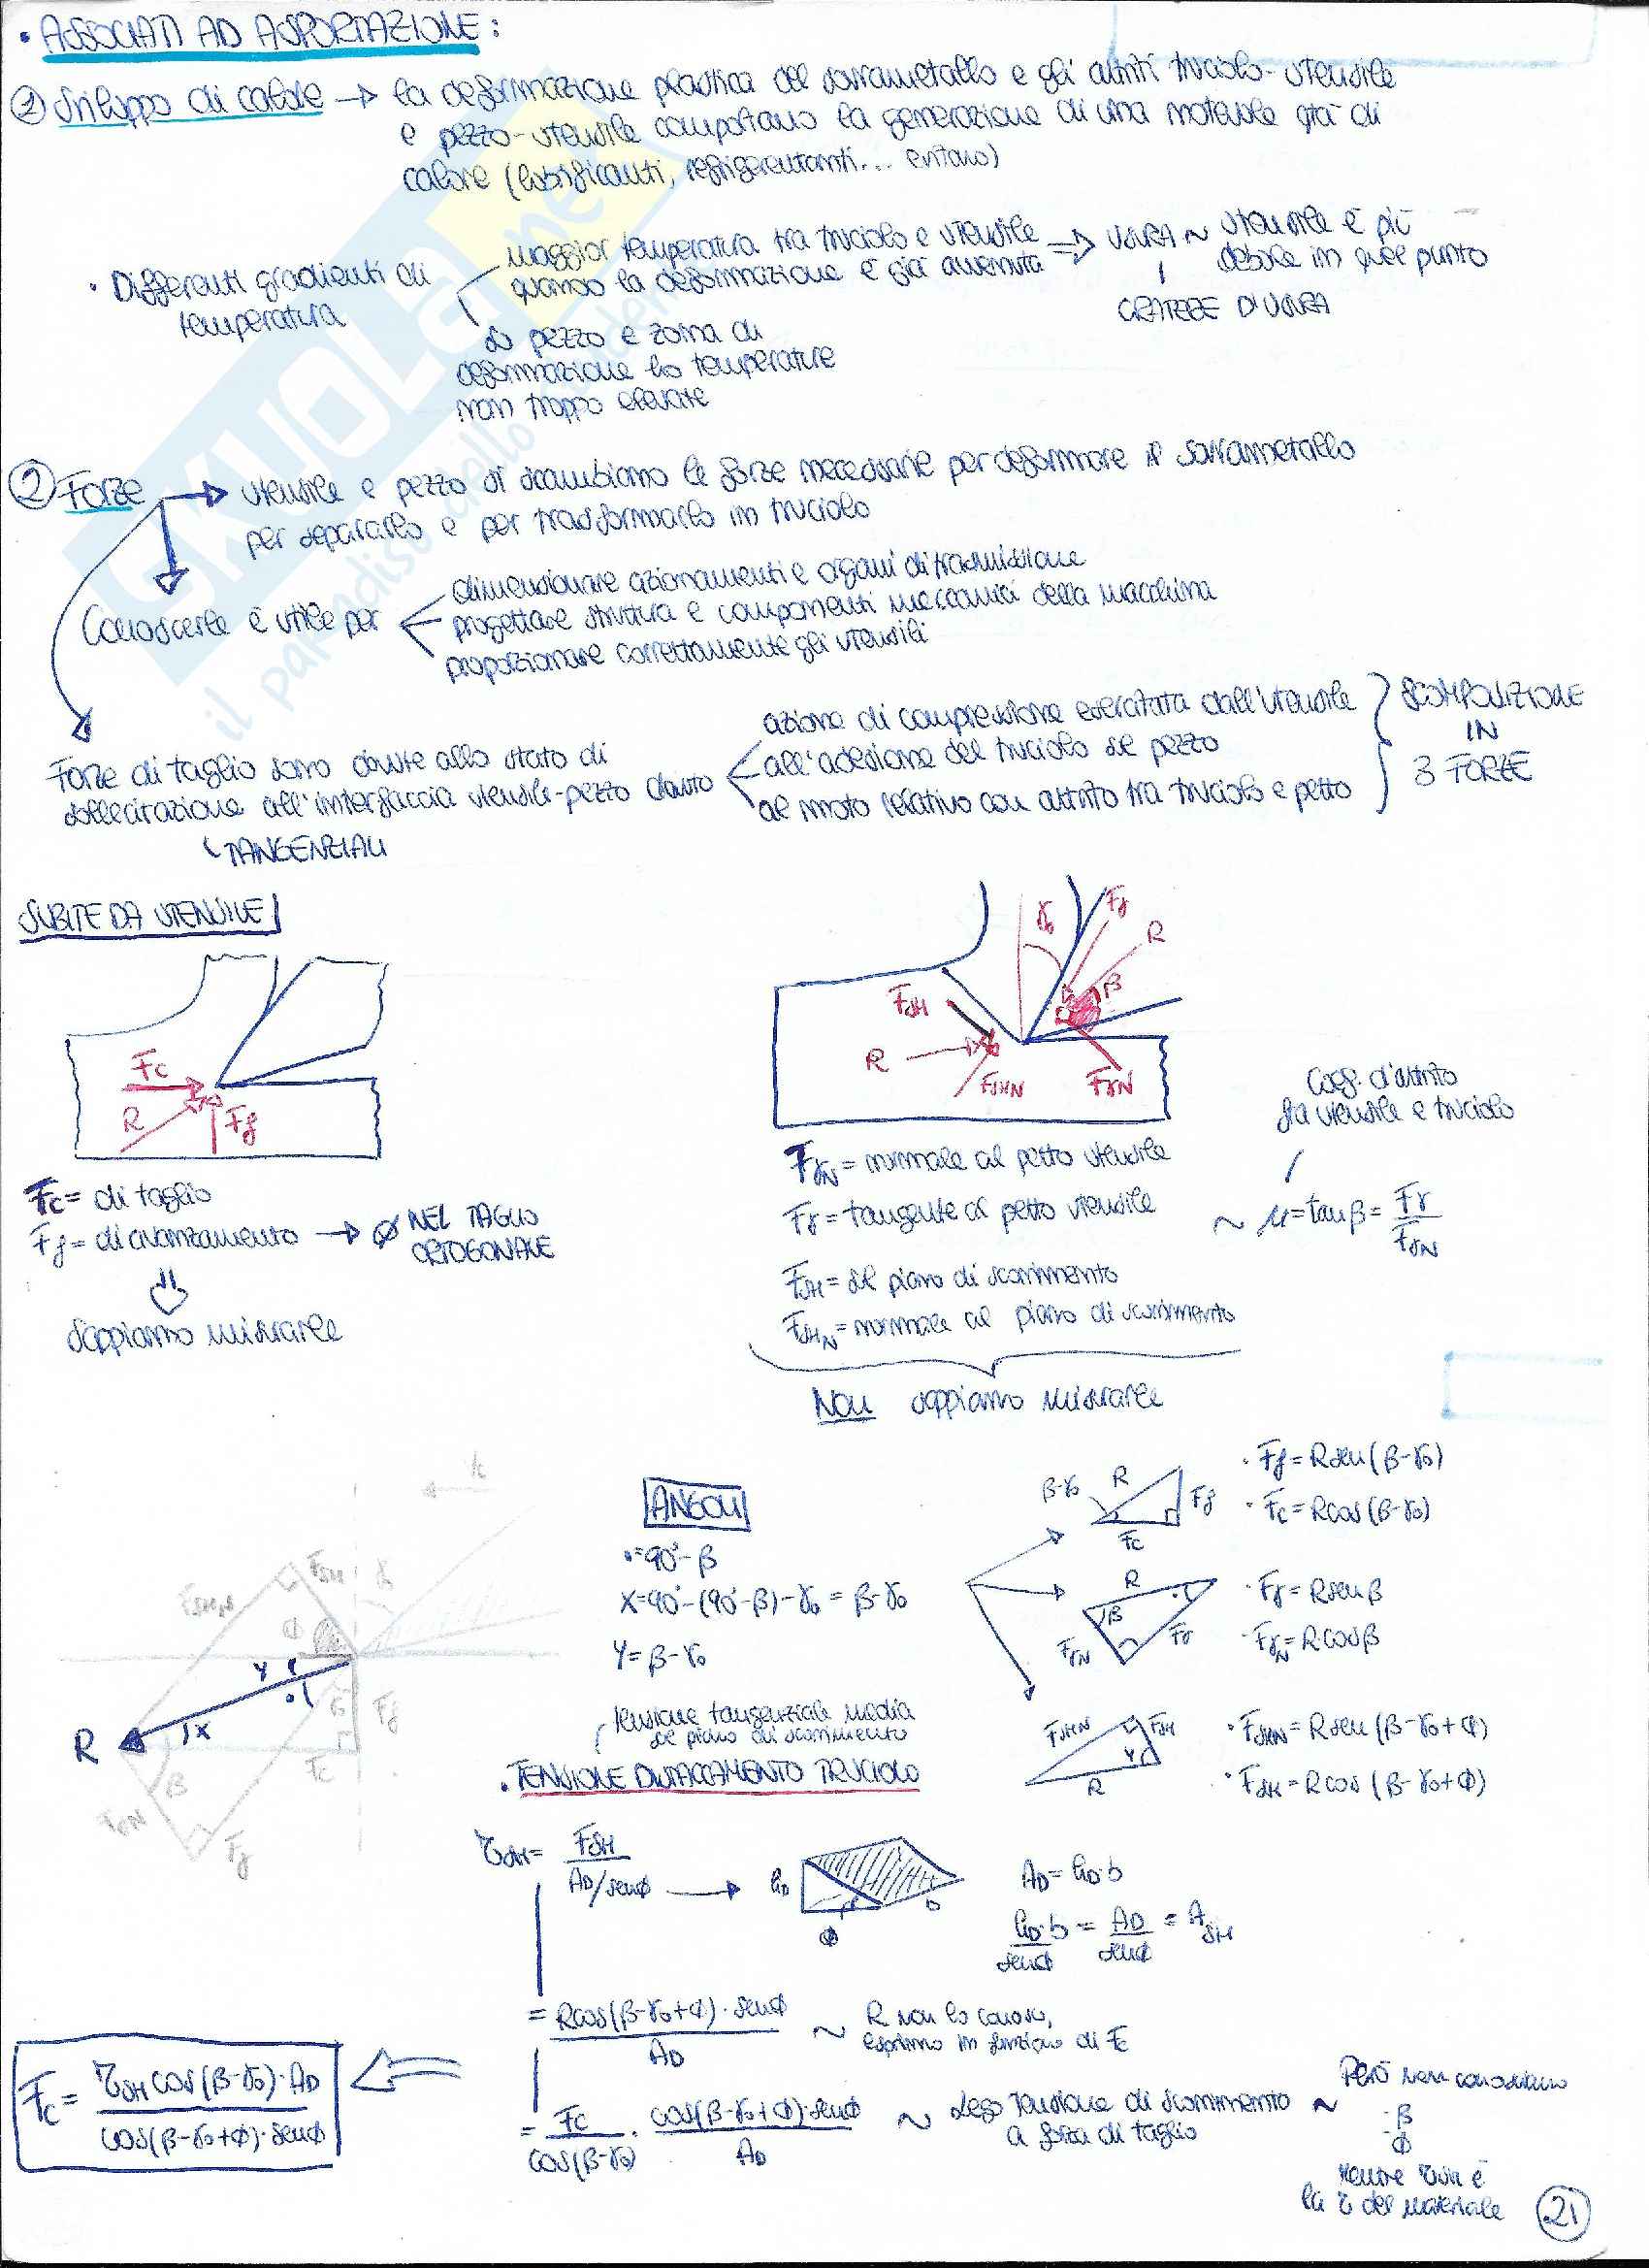 • ASSOCIATI AD ASPORTAZIONE:
① Sviluppo di calore → la deformazione plastica del sovrametallo e gli attriti truciolo-utensile
e pezzo-utensile comportano la generazione di una notevole qtà di
calore (lubrificanti, refrigerantanti... evitano)
• Differenti gradienti di
temperatura
maggior temperatura tra truciolo e utensile
quando la deformazione è già avvenuta
⇒ USURA ~ utensile è più
debole in quel punto
CRATERE D'USURA
su pezzo e zona di
deformazione ho temperature
non troppo elevate
② Forze → utensile e pezzo si scambiano le forze necessarie per deformare il sovrametallo
per separarlo e per trasformarlo in truciolo
Conoscerle è utile per
dimensionare azionamenti e organi di trasmissione
progettare struttura e componenti meccanici della macchina
proporzionare correttamente gli utensili
Forze di taglio sono dovute allo stato di
sollecitazione all'interfaccia utensile-pezzo dovuto
TANGENZIALI
azione di compressione esercitata dall'utensile
all'adesione del truciolo sul pezzo
al moto relativo con attrito tra truciolo e petto
SCOMPOSIZIONE
IN
3 FORZE
SUBITE DA UTENSILE
Fc
R
Ff
γ₀
Fγ
R
β
FSH
R
FSHN
FγN
Fc = di taglio
Ff = di avanzamento → Ø NEL TAGLIO
ORTOGONALE
sappiamo misurarle
Coeff. d'attrito
fra utensile e truciolo
FγN = normale al petto utensile
Fγ = tangente al petto utensile ~ μ = tanβ = Fγ / FγN
FSH = sul piano di scorrimento
FSHN = normale al piano di scorrimento
Non sappiamo misurarle
ANGOLI
• = 90° - β
X = 90° - (90° - β) - γ₀ = β - γ₀
Y = β - γ₀
β-γ₀
R
Ff
Fc
• Ff = R sen(β-γ₀)
• Fc = R cos(β-γ₀)
R
β
FγN
Fγ
• Fγ = R senβ
• FγN = R cosβ
FSHN
FSH
Y
R
• FSHN = R sen(β-γ₀+ϕ)
• FSH = R cos(β-γ₀+ϕ)
FSHN
FSH
ϕ
Y
R
X
Ff
Fc
β
FγN
tensione tangenziale media
sul piano di scorrimento
• TENSIONE DISTACCAMENTO TRUCIOLO
τSH = FSH / (AD/senϕ) →
hD
ϕ
b
AD = hD·b
hD·b / senϕ = AD / senϕ = ASH
= R cos(β-γ₀+ϕ)·senϕ / AD ~ R non lo conosco,
esprimo in funzione di Fc
= Fc / cos(β-γ₀) · cos(β-γ₀+ϕ)·senϕ / AD ~ Lego tensione di scorrimento
a forza di taglio
~ Però non conosciamo
- β
- ϕ
mentre τSH è
la τ del materiale
Fc = τSH cos(β-γ₀)·AD / cos(β-γ₀+ϕ)·senϕ
21
SKUOLA.net
il paradiso dello studente